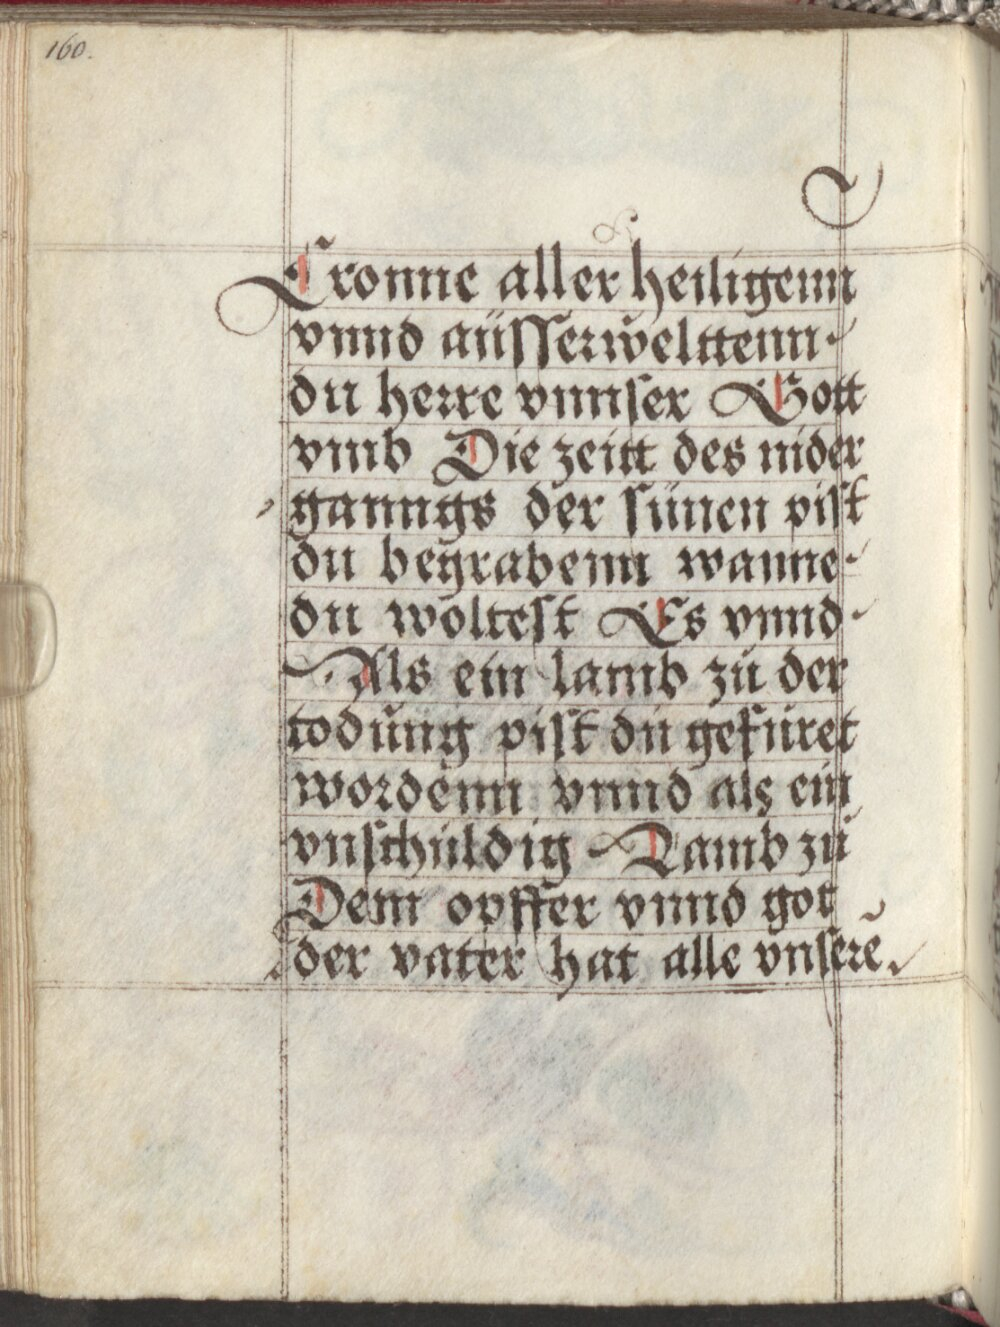 160.
Cronne aller heiligenn
vnnd aüsserwelttenn
du herre vnnser Gott
vmb Die zeitt des nider
ganngs der sünen pist
du begrabenn wanne
du woltest Es vnnd
Als ein lamb zü der
todüng pist dü gefüret
wordenn vnnd als ein
vnschüldig Lamb zü
Dem opffer vnnd got
der vater hat alle vnserē.